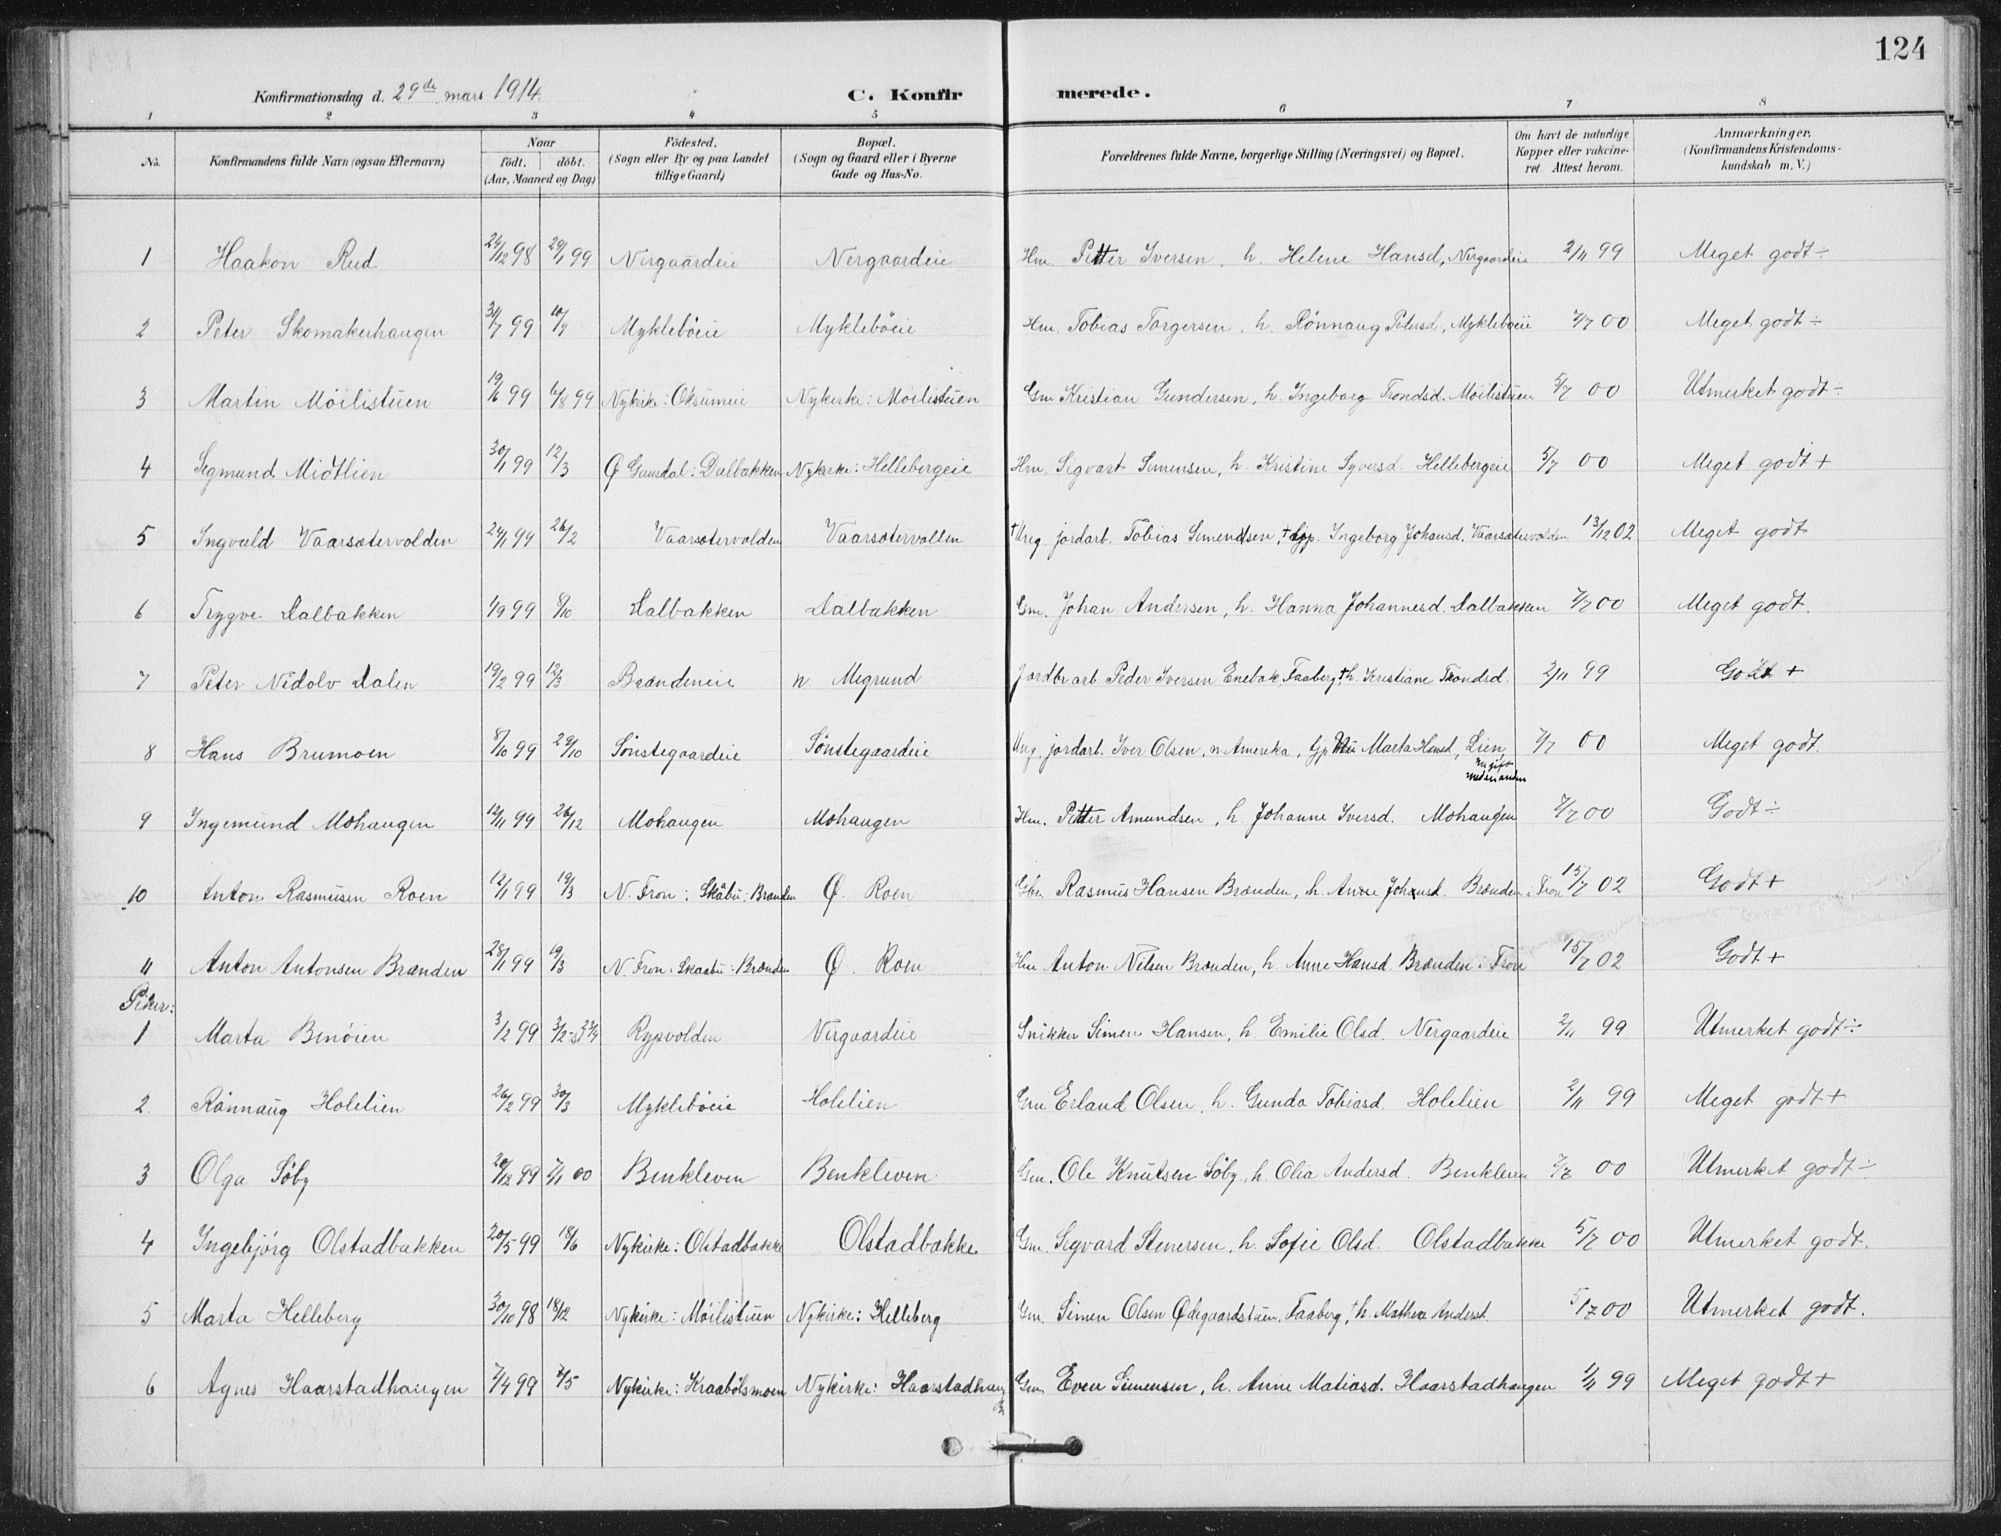 124
Konfirmationsdag d. 29de mars 1914. C. Konfirmerede.
1 2 3 4 5 6 7 8
No. Konfirmandens fulde Navn (ogsaa Efternavn) Naar født. døbt. (Aar, Maaned og Dag) Fødested. (Sogn eller By og paa Landet tillige Gaard) Bopæl. (Sogn og Gaard eller i Byerne Gade og Hus-No. Forældrenes fulde Navne, borgerlige Stilling (Næringsvei) og Bopæl. Om havt de naturlige Kopper eller vakcineret. Attest herom. Anmærkninger. (Konfirmandens Kristendomskundskab m. V.)
1 Haakon Rud 24/12 98 29/1 99 Nergaardeie Nergaardeie Hm. Petter Iversen, h. Helene Hansd, Nergaardeie 2/11 99 Meget godt ÷
2 Peter Skomakerhaugen 31/7 99 Myklebøeie Myklebøeie Hm. Tobias Torgersen, h. Rønnaug Petersd, Myklebøeie 7/7 00 Meget godt ÷
3 Martin Möilistuen 19/6 99 6/8 99 Nykirke: Oksumeie Nykirke: Moilistuen Gm Kristian Gundersen, h. Ingeborg Trondsd. Möilistuen 5/7 00 Utmerket godt ÷
4 Segmund Midtlien 30/1 99 12/3 Ø Gausdal: Dalbakken Nykirke: Hellebergeie Hm. Sigvart Simensen, h. Kristine Syversd. Hellebergeie 5/7 00 Meget godt +
5 Ingvald Vaarsætervolden 24/1 99 26/2 Vaarsætervolden Vaarsætervollen † Ung. jordarb. Tobias Simensen, † Gjp. Ingeborg Johansd. Vaarsætervolden 13/12 02 Meget godt
6 Trygve Dalbakken 1/9 99 8/10 Dalbakken Dalbakken Gm. Johan Andersen, h. Hanna Johannesd. Dalbakken 7/7 00 Meget godt.
7 Peter Nidolv Dalen 19/2 99 12/3 Brændeneie n Megrund Jordbrarb Peder Iversen Enebak, Faaberg, † h. Kristiane Trondsd. 2/11 99 Godt +
8 Hans Brumoen 8/10 99 29/10 Sønstegaardeie Sønstegaardeie Ung. jordarb. Iver Olsen, n Amerika, Gjp Marta Hansd, Lien nu gift med en anden 7/7 00 Meget godt.
9 Ingemund Mohaugen 12/11 99 26/12 Mohaugen Mohaugen Hm. Petter Amundsen, h. Johanne Iversd. Mohaugen 7/7 00 Godt ÷
10 Anton Rasmusen Roen 12/1 99 19/3 N. Fron: Skåbu: Brænden Ø. Roen Gbr. Rasmus Hansen Brænden, h. Anne Johansd. Brænden i Fron 15/7 02 Godt +
11 Anton Antonsen Brænden 28/1 99 19/3 N. Fron: Skaabu: Brænden Ø. Roen Hm Anton Nilsen Brænden, h. Anne Hansd. Brænden i Fron 15/7 02 Godt +
Piker:
1 Marta Benøien 3/2 99 Rypvolden Nergaardeie Snikker Simen Hansen, h. Emilie Olsd. Nergaardeie 2/11 99 Utmerket godt ÷
2. Rønnaug Holelien 26/2 99 30/3 Myklebøeie Holelien Gm Erland Olsen, h. Gunda Tobiasd Holelien 2/11 99 Meget godt +
3 Olga Søby 20/12 99 7/1 00 Benkleven Benkleven Gm. Ole Knutsen Søby, h. Olia Andersd. Benkleven 7/7 00 Utmerket godt ÷
4 Ingebjørg Olstadbakken 20/5 99 18/6 Nykirke: Olstadbakke Olstadbakke. Gm. Sigvard Stenersen, h. Sofie Olsd. Olstadbakke 5/7 00 Utmerket godt.
5 Marta Helleberg 30/10 98 18/12 Nykirke: Möilistuen Nykirke: Helleberg Gm. Simen Olsen Ødegaardstuen, Faaberg, † h. Mathea Andersd. 5/7 00 Utmerket godt.
6 Agnes Haarstadhaugen 7/4 99 Nykirke: Kraabölsmoen Nykirke: Haarstadhaugen Gm. Even Simensen, h. Anne Matiasd. Haarstadhaugen 1/11 99 Meget godt +